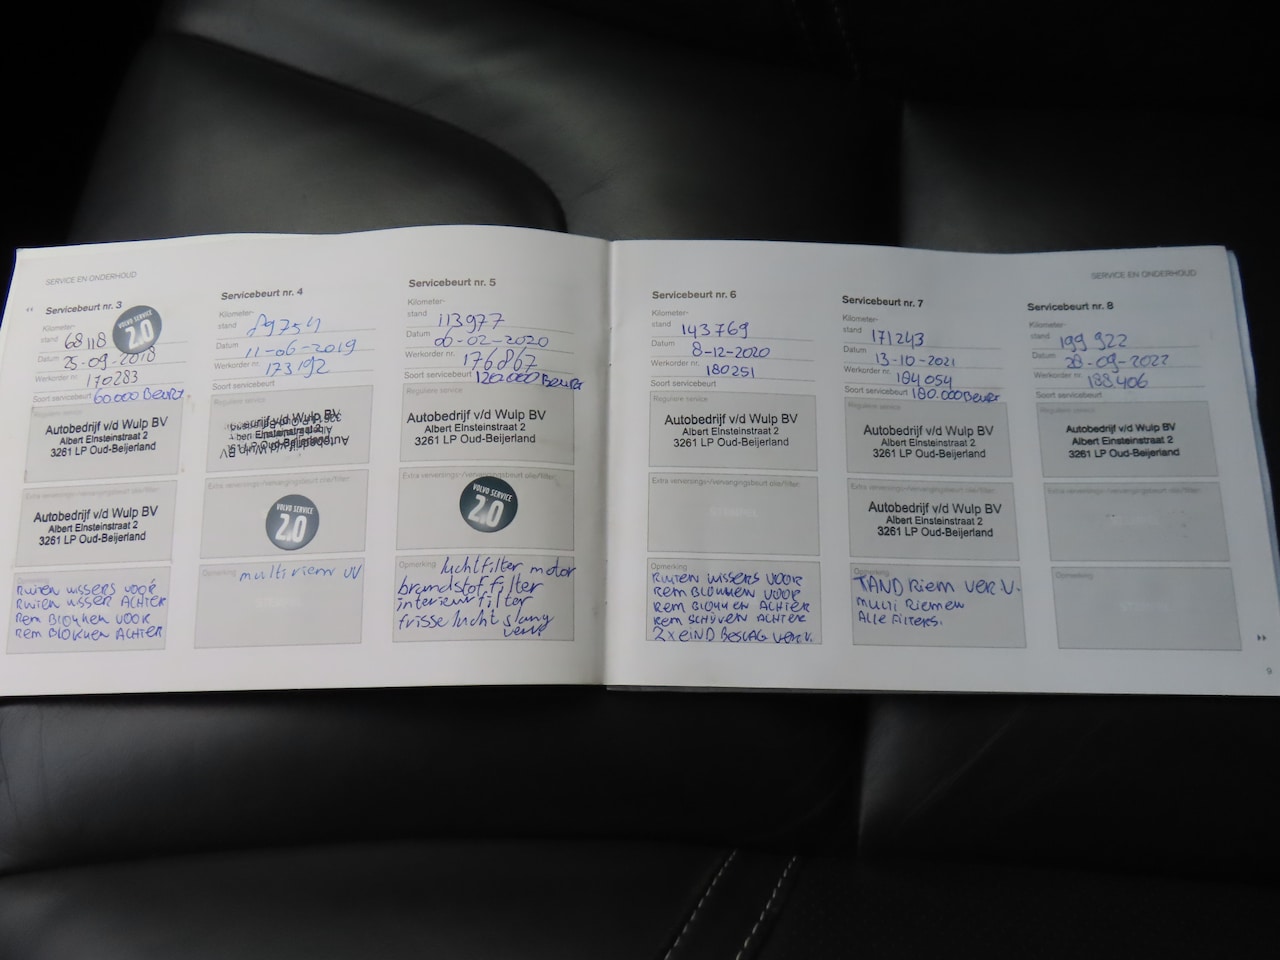 SERVICE EN ONDERHOUD
Servicebeurt nr. 3
Kilometer-
stand 68118
Datum 25-09-2018
Werkorder nr. 170283
Soort servicebeurt 60.000 Beurt
VOLVO SERVICE
2.0
Reguliere service
Autobedrijf v/d Wulp BV
Albert Einsteinstraat 2
3261 LP Oud-Beijerland
Extra verversings-/vervangingsbeurt olie/filter
Autobedrijf v/d Wulp BV
Albert Einsteinstraat 2
3261 LP Oud-Beijerland
Opmerking
Ruiten wissers voor
Ruiten wisser achter
Rem Blokken voor
Rem Blokken achter
Servicebeurt nr. 4
Kilometer-
stand 89754
Datum 11-06-2019
Werkorder nr. 173192
Soort servicebeurt
Reguliere service
Autobedrijf v/d Wulp BV
Albert Einsteinstraat 2
3261 LP Oud-Beijerland
Extra verversings-/vervangingsbeurt olie/filter
VOLVO SERVICE
2.0
Opmerking multi riem VV
Servicebeurt nr. 5
Kilometer-
stand 113977
Datum 06-02-2020
Werkorder nr. 176867
Soort servicebeurt 120.000 Beurt
Reguliere service
Autobedrijf v/d Wulp BV
Albert Einsteinstraat 2
3261 LP Oud-Beijerland
Extra verversings-/vervangingsbeurt olie/filter
VOLVO SERVICE
2.0
Opmerking luchtfilter motor
brandstoffilter
interieurfilter
frisse lucht slang
verv
SERVICE EN ONDERHOUD
Servicebeurt nr. 6
Kilometer-
stand 143769
Datum 8-12-2020
Werkorder nr. 180251
Soort servicebeurt
Reguliere service
Autobedrijf v/d Wulp BV
Albert Einsteinstraat 2
3261 LP Oud-Beijerland
Extra verversings-/vervangingsbeurt olie/filter
STEMPEL
Opmerking
Ruiten wissers voor
Rem Blokken voor
Rem Blokken achter
Rem schijven achter
2x eind beslag verv.
Servicebeurt nr. 7
Kilometer-
stand 171243
Datum 13-10-2021
Werkorder nr. 184054
Soort servicebeurt 180.000 Beurt
Reguliere service
Autobedrijf v/d Wulp BV
Albert Einsteinstraat 2
3261 LP Oud-Beijerland
Extra verversings-/vervangingsbeurt olie/filter
Autobedrijf v/d Wulp BV
Albert Einsteinstraat 2
3261 LP Oud-Beijerland
Opmerking
TAND Riem verv.
multi Riemen
Alle filters.
Servicebeurt nr. 8
Kilometer-
stand 199 922
Datum 28-09-2022
Werkorder nr. 188406
Soort servicebeurt
Reguliere service
Autobedrijf v/d Wulp BV
Albert Einsteinstraat 2
3261 LP Oud-Beijerland
Extra verversings-/vervangingsbeurt olie/filter
STEMPEL
Opmerking
9